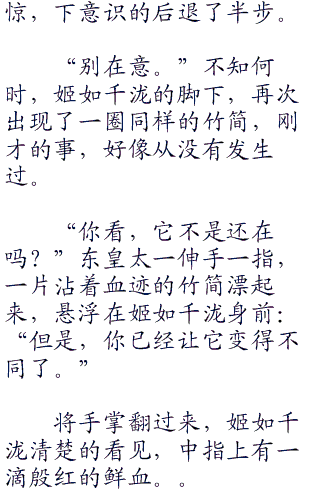 惊，下意识的后退了半步。
“别在意。”不知何
时，姬如千泷的脚下，再次
出现了一圈同样的竹简，刚
才的事，好像从没有发生
过。
“你看，它不是还在
吗？”东皇太一伸手一指，
一片沾着血迹的竹简漂起
来，悬浮在姬如千泷身前：
“但是，你已经让它变得不
同了。”
将手掌翻过来，姬如千
泷清楚的看见，中指上有一
滴殷红的鲜血。。